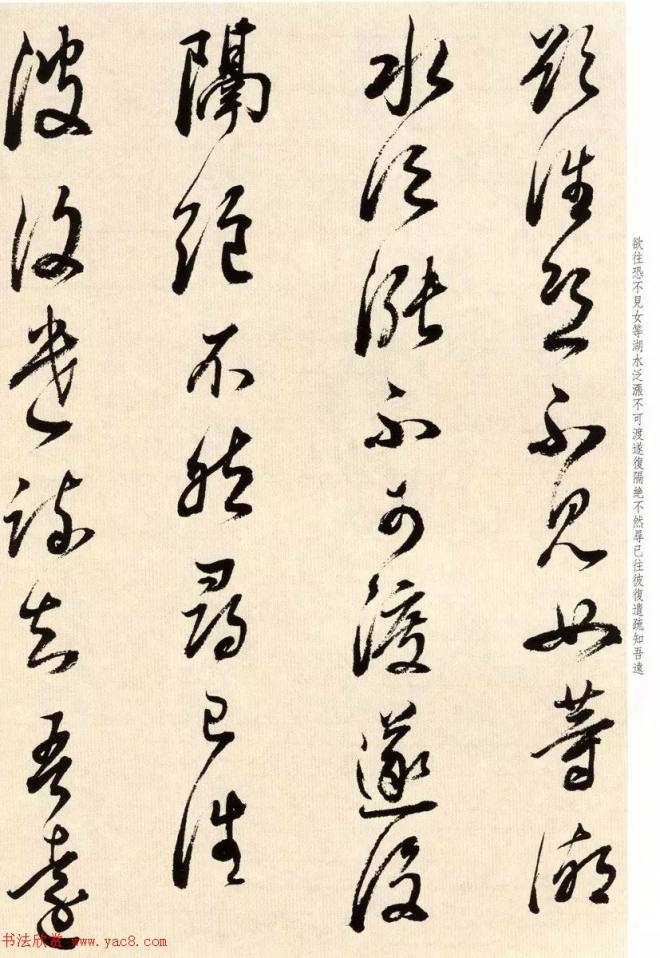 欲往恐不見女等湖
水泛漲不可渡遂復
隔絶不然尋已往
彼復遣疏知吾遠
欲往恐不見女等湖水泛漲不可渡遂復隔絶不然尋已往彼復遣疏知吾遠
书法欣赏 www.yac8.com